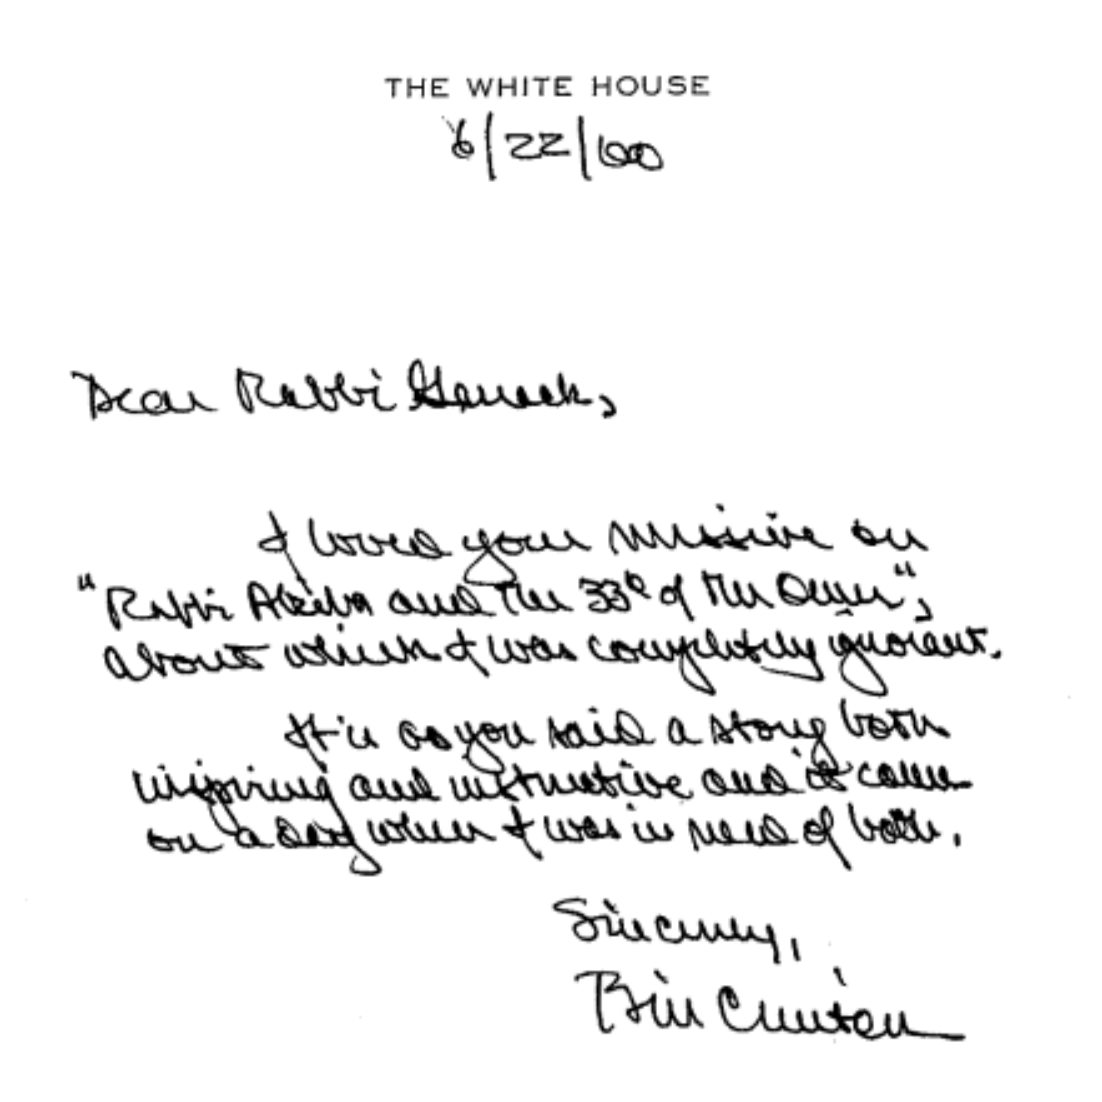 THE WHITE HOUSE
6/22/00
Dear Rabbi Genack,
I loved your missive on
"Rabbi Akiba and the 33ᵈ of the Omer",
about which I was completely ignorant.
It is as you said a story both
inspiring and instructive and it came
on a day when I was in need of both.
Sincerely,
Bill Clinton